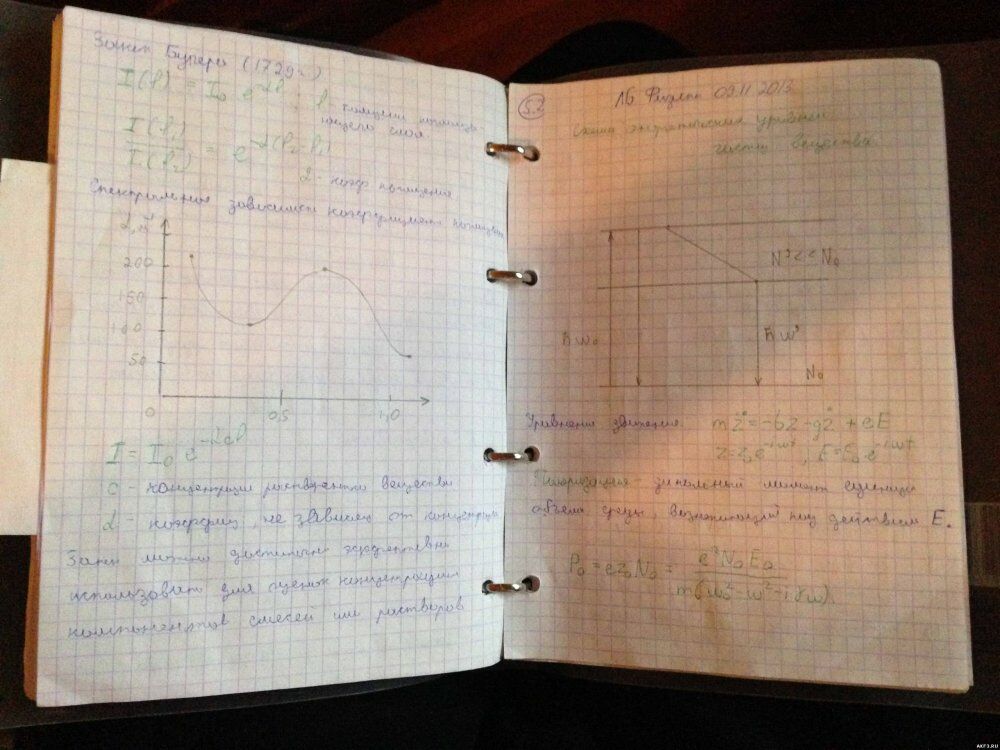 Закон Бугера (1729г.)
I(l) = I₀ e^{-αl} ; l - толщина поглоща-
ющего слоя
I(l₁)/I(l₂) = e^{-α(l₂-l₁)}
α - коэф поглощения
Спектральная зависимость коэффициента поглощения
α, м⁻¹
200
150
100
50
0
0,5
1,0
I = I₀ e^{-αcl}
c - концентрация растворенного вещества
α - коэффиц, не зависящ от концентрации
Закон можно достаточно эффективно
использовать для оценок концентрации
компонентов смесей или растворов
5.2
Физика 09.11.2013
Схема энергетических уровней
частиц вещества.
N³ << N₀
ħω₀
ħω³
N₀
Уравнение движения: mz̈ = -bz - gż + eE
z = z₀e^{-iωt} ; E = E₀·e^{-iωt}
Поляризация - дипольный момент единицы
объема среды, возникающий под действием E.
P₀ = ez₀N₀ = e²N₀E₀/m(ω₀² - ω² - iγω)